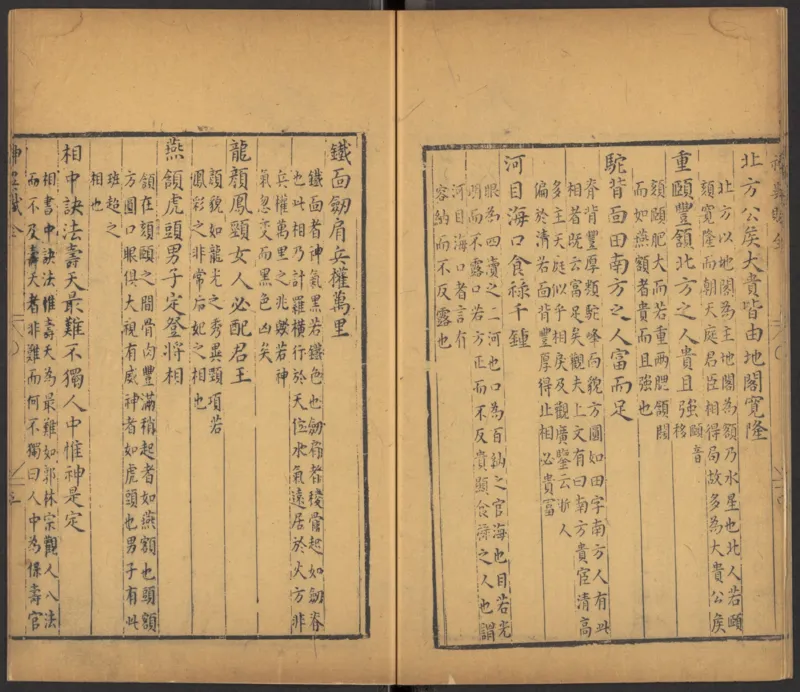 北方公矦大貴皆由地閣寛隆
北方以地閣為主地閣為頷乃水星也北人若頤
頦寛隆而朝天庭君臣相得局故多為大貴公矦
重頤豐頷北方之人貴且強頤音移
頦頤肥大而若重兩肥頷闊
而如燕頷者貴而且強也
駝背面田南方之人富而足
脊背豐厚類駝峰而貌方圓如田字南方人有此
相者既云富足矣觀夫上文有曰南方貴宦清高
多主天庭似乎相戾及觀廣鑒云浙人
偏於清若面背豐厚得此相必貴冨
河目海口食祿千鍾
眼為四瀆之二河也口為百納之官海也目若光
明而不露口若方正而不反貴顯食祿之人也謂
河目海口者言有
容納而不反露也
鐵面劒肩兵權萬里
鐵面者神氣黑若鐵色也劒肩者稜骨起如劒脊
也此相乃計羅橫行於天位水氣遠居於火方非
兵權萬里之兆歟若神
氣忽变而黑色凶矣
龍顏鳳頸女人必配君王
顏貌如龍光之秀異頸項若
鳳彩之非常后妃之相也
燕頷虎頭男子定登將相
頷在頦頤之間骨肉豐滿稍起者如燕頷也頭額
方圓口眼俱大視有威神者如虎頭也男子有此
班超之
相也
相中訣法壽夭最難不獨人中惟神是定
相書中訣法惟壽夭為最難如郭林宗觀人八法
而不及壽夭者非難而何不獨曰人中為保壽官